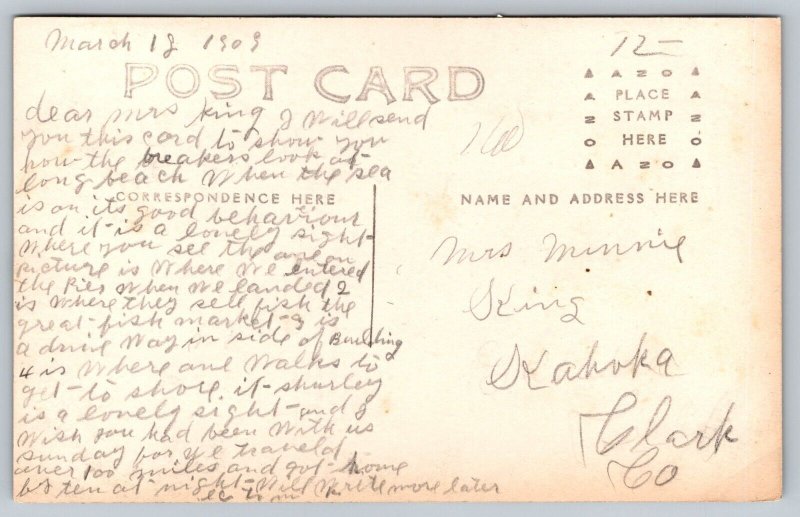 March 18 1909
POST CARD
dear Mrs King I Will send
you this card to show you
how the breakers look at
long beach When the sea
is on its good behaviour
and it is a lonely sight
Where you see the one on
picture is Where We entered
the Pier When We landed 2
is Where they sell fish the
great fish market - 3 is
a drive Way in side of Bouilding
4 is Where one Walks to
get to shore. it shurley
is a lonely sight and I
Wish you had been With us
sunday for We traveld
over 100 miles and got home
by ten at night Will Write more later
CORRESPONDENCE HERE
12-
AZO
PLACE
STAMP
HERE
AZO
NAME AND ADDRESS HERE
Mrs Minnie
King
Kahoka
Clark
Co